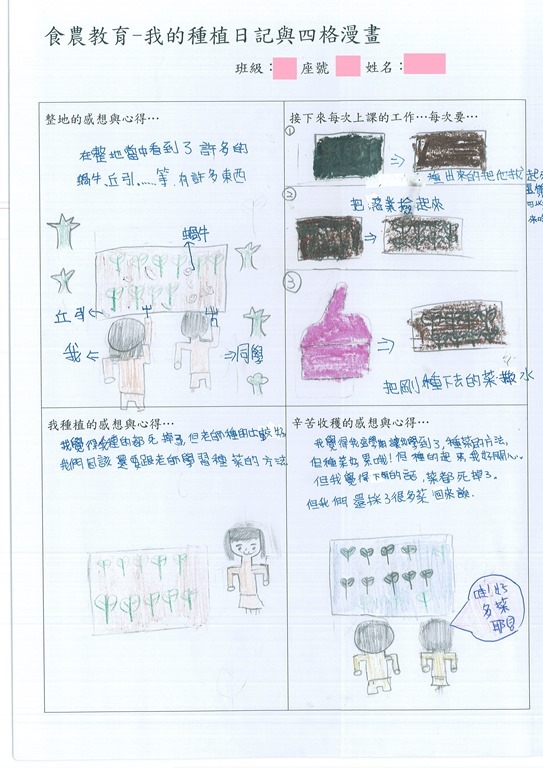 食農教育-我的種植日記與四格漫畫
班級： 座號 姓名：
整地的感想與心得…
在整地當中看到了許多的
蝸牛、丘引……等,有許多東西
蝸牛
丘引
我
同學
接下來每次上課的工作…每次要…
①
種出來的把他拔起
②
把落業撿起來
③
把剛種下去的菜撒水
我種植的感想與心得…
我覺得我種的都死掉了,但老師種的比較好,
我們因該還要跟老師學習種菜的方法
辛苦收穫的感想與心得…
我覺得我這學期讓我學到了,種菜的方法,
但種菜好累哦!但種的起來我好開心。
但我覺得下雨的話,菜都死掉了。
但我們還採了很多菜回來耶。
哇!好
多菜
耶!